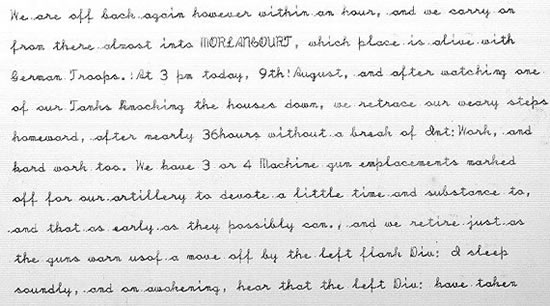 We are off back again however within an hour, and we carry on
from there almost into MORLANCOURT, which place is alive with
German Troops. At 3 pm today, 9th August, and after watching one
of our Tanks knocking the houses down, we retrace our weary steps
homeward, after nearly 36hours without a break of Int: Work, and
hard work too. We have 3 or 4 Machine gun emplacements marked
off for our artillery to devote a little time and substance to,
and that as early as they possibly can., and we retire just as
the guns warn usof a move off by the left flank Div: I sleep
soundly, and on awakening, hear that the left Div: have taken